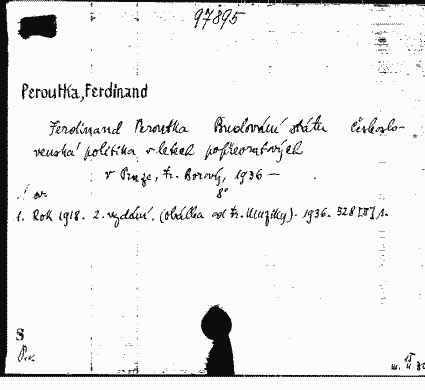 97895
Peroutka, Ferdinand
Ferdinand Peroutka Budování státu českoslo-
venská politika v letech popřevratových
v Praze, Fr. Borový, 1936 —
8°
1. Rok 1918. 2. vydání. (obálka od Fr. Muziky). 1936. 528 [II] s.
S